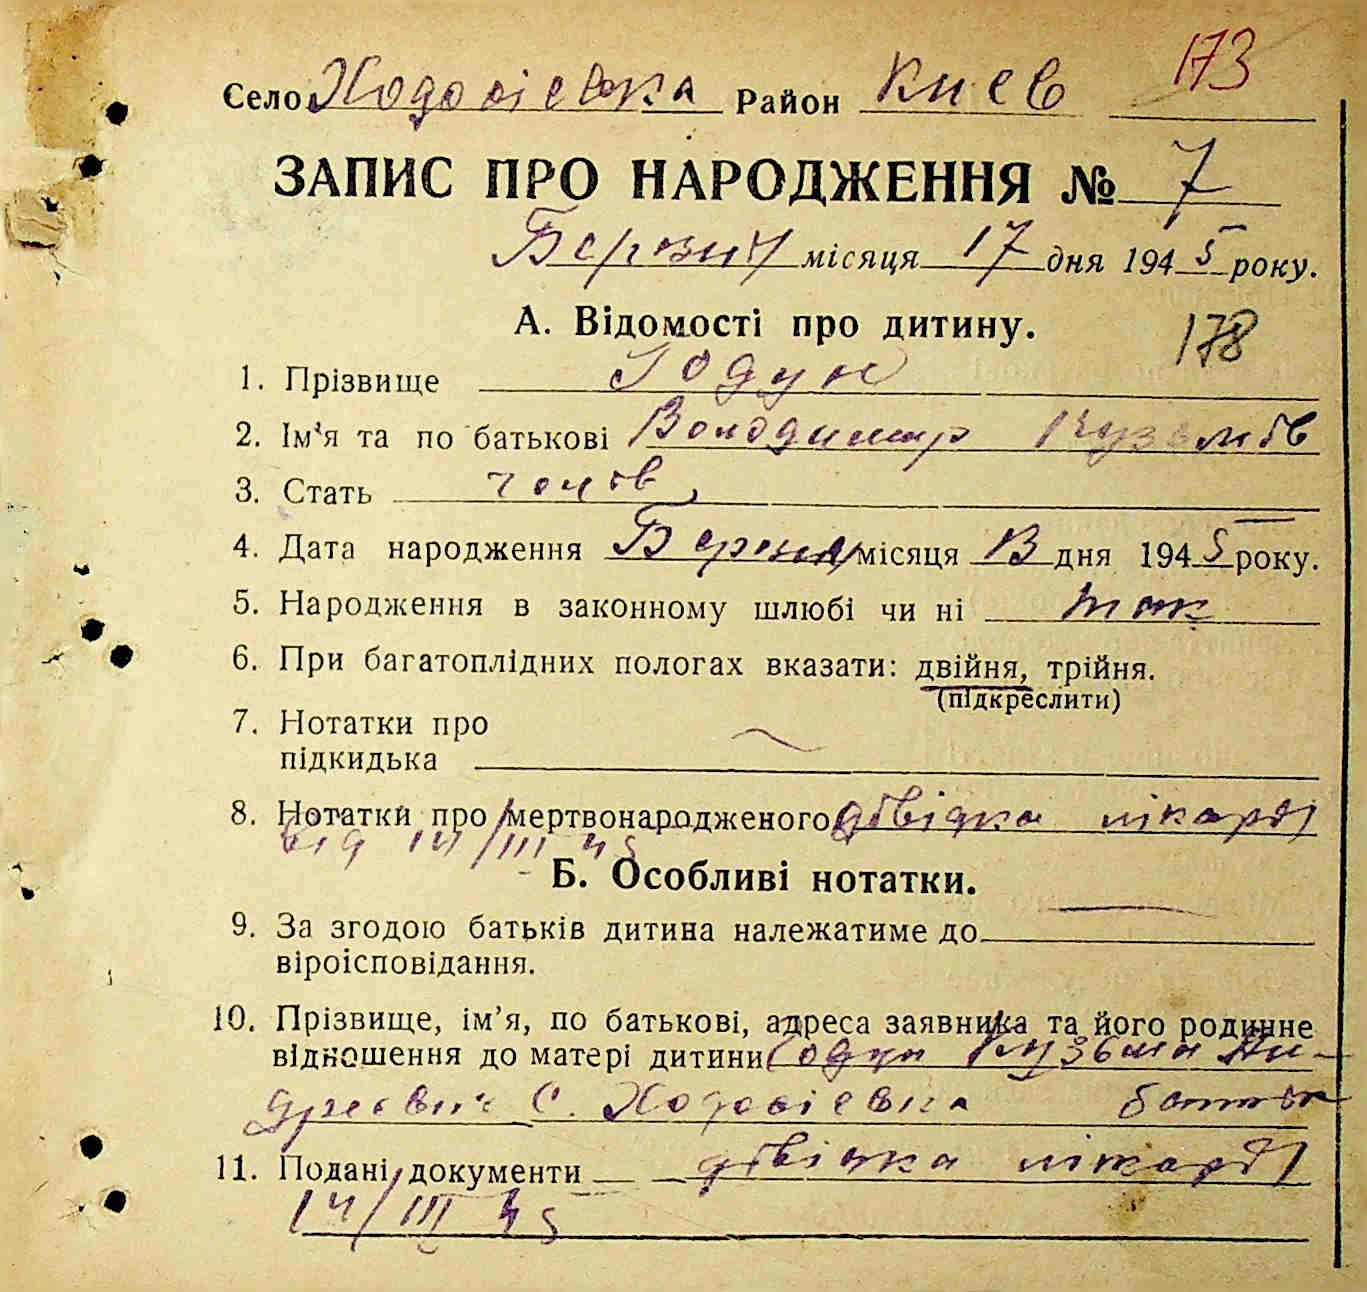 173
Село Ходосіевка Район Киев
ЗАПИС ПРО НАРОДЖЕННЯ № 7
Березня місяця 17 дня 1945 року.
А. Відомості про дитину.
178
1. Прізвище Годун
2. Ім'я та по батькові Володимир Кузьмов
3. Стать чолов,
4. Дата народження Березня місяця 13 дня 1945 року.
5. Народження в законному шлюбі чи ні так
6. При багатоплідних пологах вказати: двійня, трійня.
(підкреслити)
7. Нотатки про
підкидька
8. Нотатки про мертвонародженого довідка лікаря
від 14/III 45
Б. Особливі нотатки.
9. За згодою батьків дитина належатиме до
віроісповідання.
10. Прізвище, ім'я, по батькові, адреса заявника та його родинне
відношення до матері дитини Годун Кузьма Ан-
дреевич С. Ходосіевка батько
11. Подані документи довідка лікаря
14/III 45